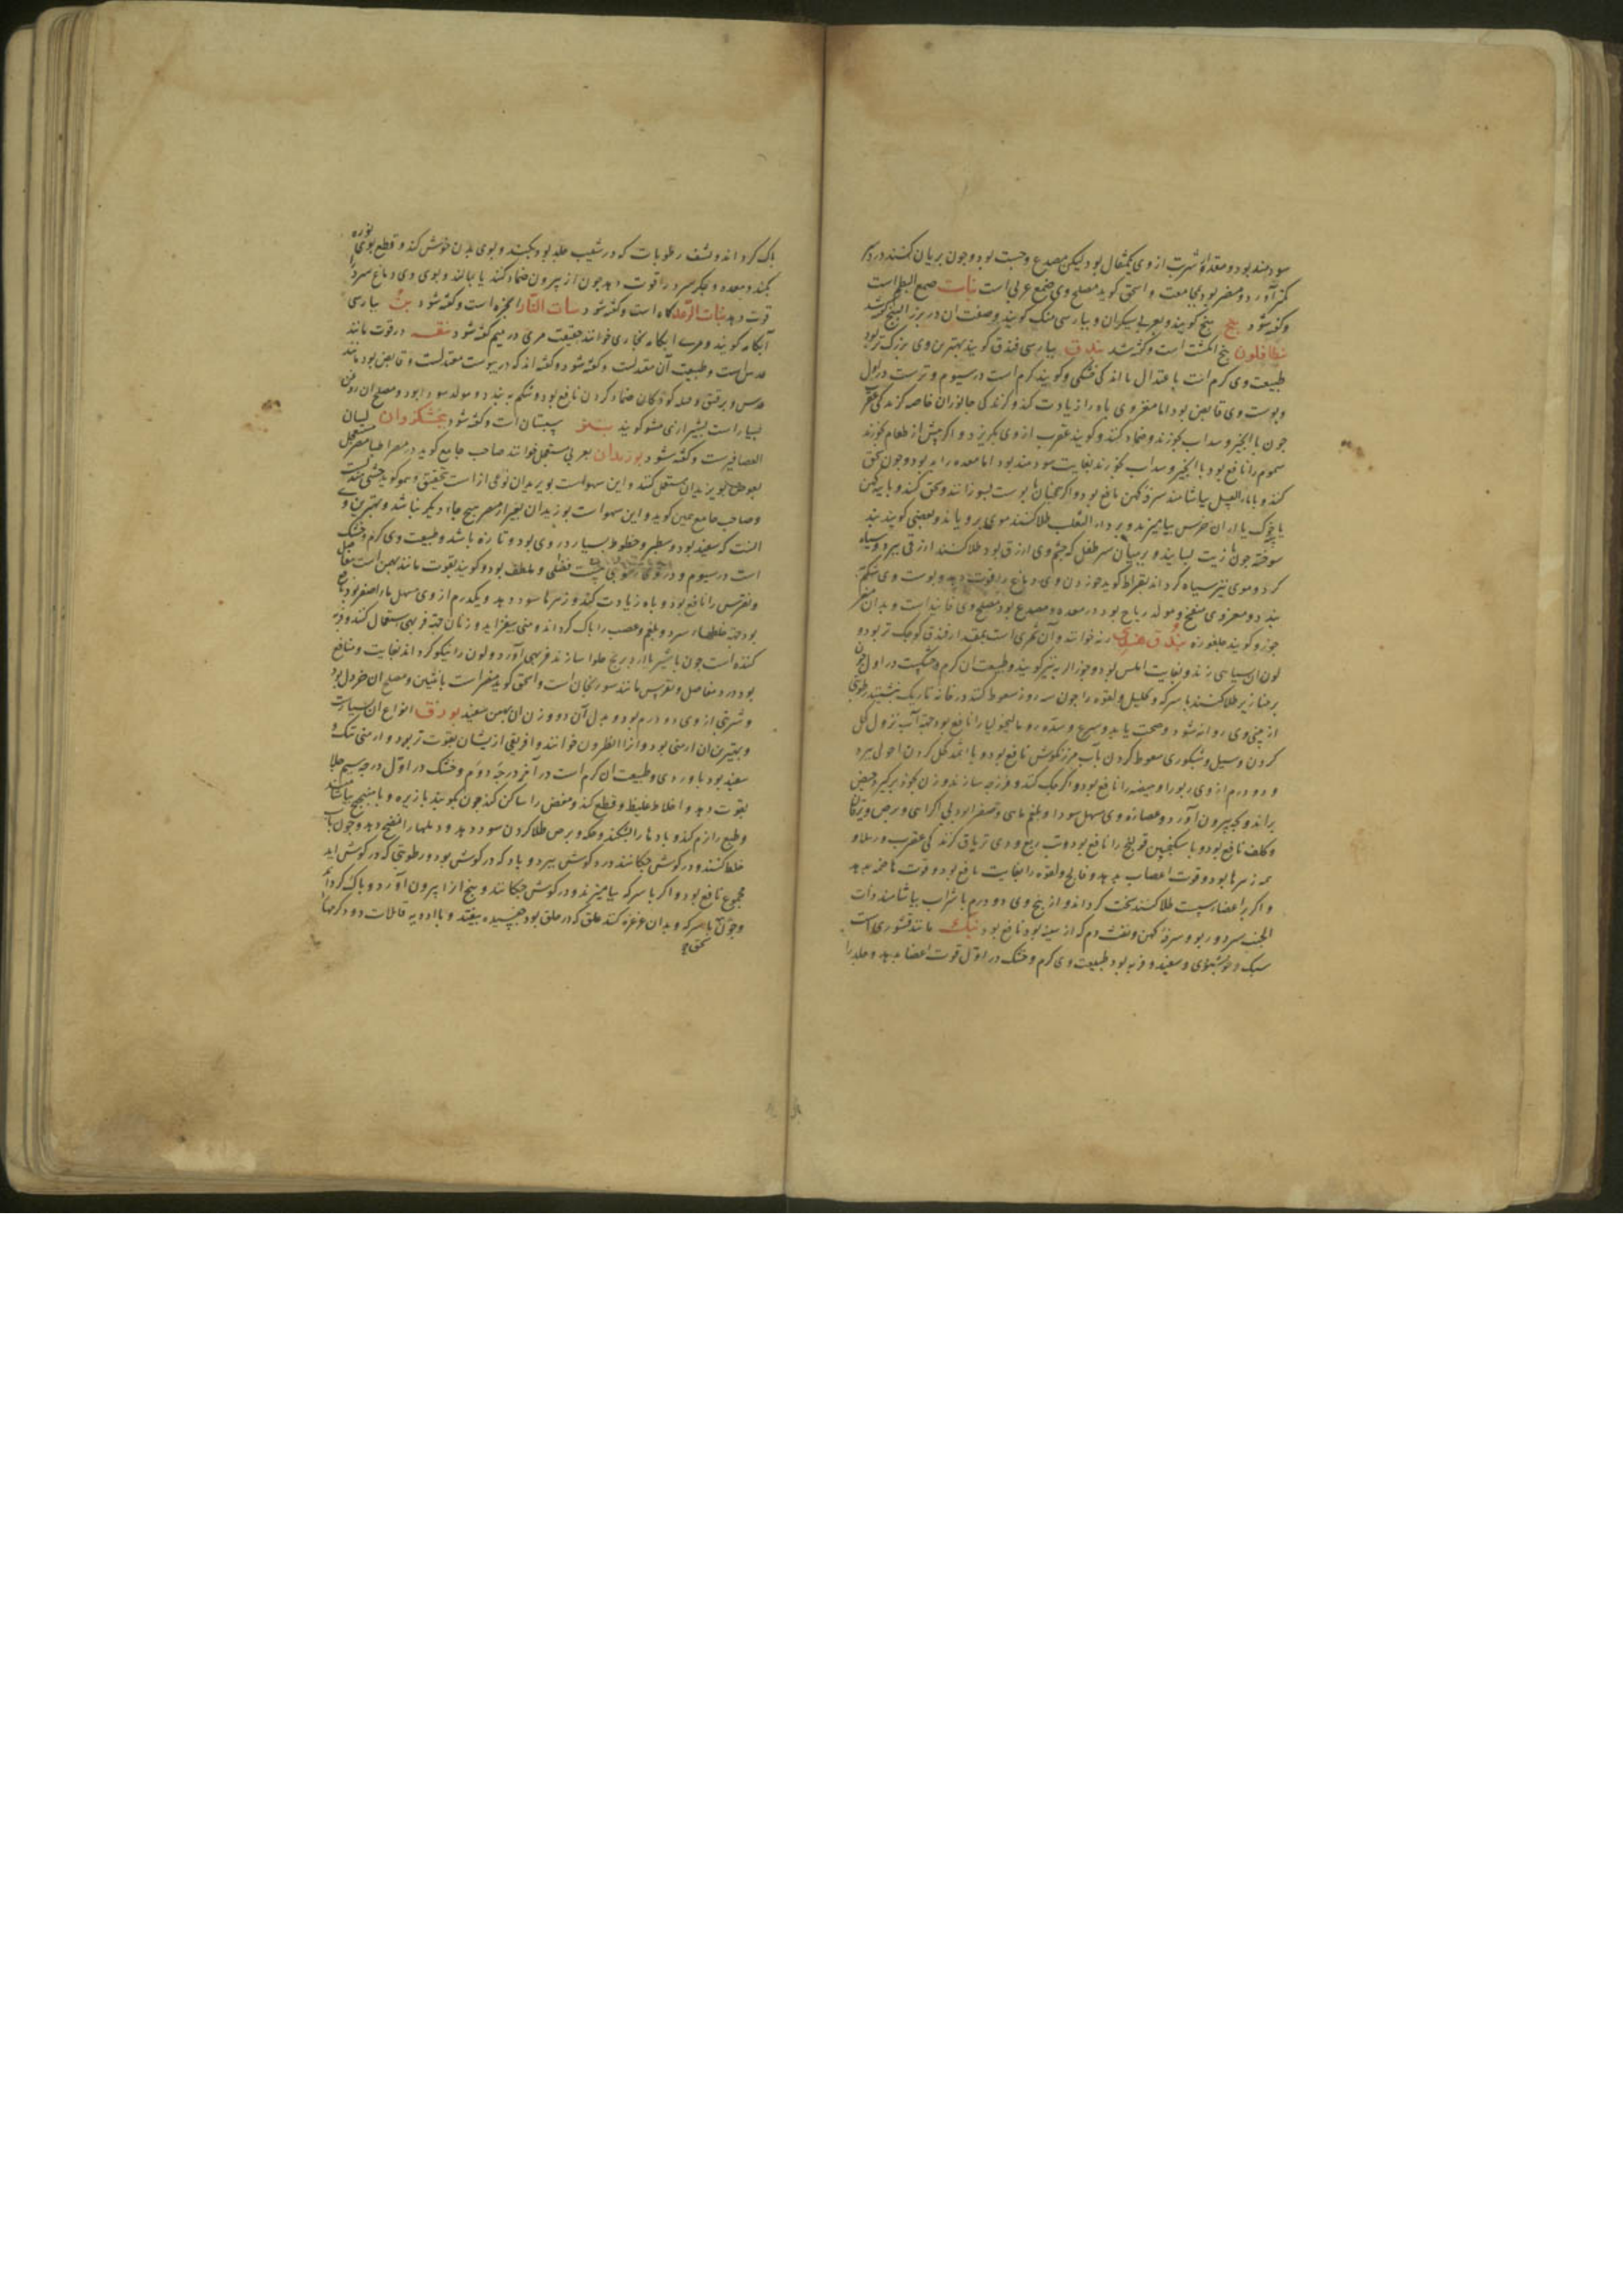 سودمند بود و مقدار شربت از وی یکمثقال بود لیکن مصدع وجبت بود و چون بریان کنند در سر
کمتر آورد و مضر بود بمجامعت و اسحق کوید مصلح وی صمغ عربی است نبات صمغ البطم است
و کفته شود بنج بنج کویند و بعربی سیکران و بپارسی منک کویند و صفت آن در بزر البنج کفته شد
بنطافلون پنج انکشت است و کفته شد بندق بپارسی فندق کویند بهترین وی بزرک تر بود
طبیعت وی کرم است باعتدال با اندکی خشکی و کویند کرم است در سیوم و ترست در اول
و پوست وی قابض بود اما مغز وی باه را زیادت کند و کزندکی جانوران خاصه کزندکی عقرب
چون با انجیر و سداب بخورند و ضماد کنند و کویند عقرب از وی بکریزد و اکر پیش از طعام بخورند
سموم را نافع بود با انجیر و سداب بخورند بغایت سودمند بود اما معده را بد بود و چون سحق
کنند و با ماء العسل بیاشامند سرفه کهن را نافع بود و اکر همچنان با پوست بسوزانند و سحق کنند و با پیه کهن
یا پیه خرس بیامیزند و بر داء الثعلب طلا کنند موی برویاند و بعضی کویند بند
سوخته چون با زیت بسایند و بر میان سر طفل که چشم وی ازرق بود طلا کنند ازرقی ببرد و سیاه
کرد و موی نیز سیاه کرداند بقراط کوید خوردن وی دماغ را قوت دهد و پوست وی شکم
ببندد و مغز وی منفخ و مولد ریاح بود در معده و مصدع بود مصلح وی فانید است و بدل آن مغز
جوز و کویند جلغوزه بندق هندی رته خوانند و آن ثمری است بمقدار فندق کوچک تر بود و
لون آن سیاهی زند و بغایت املس بود و جوز الرته نیز کویند و طبیعت آن کرم و خشکست در اول چون
بر خنازیر طلا کنند با سرکه و تحلیل و لقوه را چون سه روز سعوط کنند در خانه تاریک بنشینند رطوبتی
از بینی وی روانه شود و صحت یابد و صرع و سده و مالیخولیا را نافع بود جهة آب نزول کحل
کردن و سبل و شبکوری سعوط کردن بآب مرزنکوش نافع بود و با اثمد کحل کردن احول ببرد
و دو درم از وی ربو را و هیضه را نافع بود و اکر حب کنند و فرزجه سازند و زن بخود برکیرد حیض
براند و بچه بیرون آورد و عصاره وی مسهل سودا و بلغم مایی و صفرا بود بی اکراهی و برص و یرقان
و کلف نافع بود و با سکنجبین قولنج را نافع بود و تب ربع و وی تریاق کزندکی عقرب و رتیلا و
همه زهرها بود و قوت اعصاب بدهد و فالج و لقوه را بغایت نافع بود و قوت هاضمه بدهد
و اکر بر اعضاء سست طلا کنند سخت کرداند و از بیخ وی دو درم با شراب بیاشامند ذات
الجنب سرد و ربو و سرفه کهن و نفث دم که از سینه بود نافع بود بنک مانند قشوری است
سبک و خوشبوی و سفید و فربه بود طبیعت وی کرم و خشک در اول قوت اعضا بدهد و جلد را
پاک کرداند و نشف رطوبات که در شیب جلد بود بکند و بوی بدن خوش کند و قطع بوی نوره
بکند و معده و جکر سرد را قوت دهد چون از بیرون ضماد کنند یا بمالند و بوی وی دماغ سرد را
قوت دهد نبات الرعد کماه است و کفته شود نبات النار انجره است و کفته شود بن بپارسی
آبکامه کویند و مرء ابکامه بخاری خوانند بحقیقت مری در میم کفته شود بنقه در قوت مانند
عدس است و طبیعت آن معتدلست و کفته شود و کفته اند که در یبوست معتدلست و قابض بود مانند
عدس و برفتق و صله کودکان ضماد کردن نافع بود و شکم ببندد و مولد سودا بود و مصلح آن روغن
بسیار است بشیرازی مشو کویند سپستان است و کفته شود بنجشک زوان لسان
العصافیرست و کفته شود بوزیدان بعربی مستعجل خوانند صاحب جامع کوید در مصر اطبا مستعجل
بعوض بوزیدان مستعمل کنند و این سهوست بوزیدان نوعی از است بتحقیق و همو کوید
و صاحب جامع همین کوید و این سهو است بوزیدان بغیر از مصر هیچ جای دیکر نباشد و بهترین وی
آنست که سفید بود و سطبر و خطوط بسیار در وی بود و تازه باشد و طبیعت وی کرم و خشک
است در سیوم و در وی رطوبتی هست فضلی و ملطف بود و کویند بقوت مانند بهمن است مفاصل
و نقرس را نافع بود و باه زیادت کند و زهرها سود دهد و یکدرم از وی مسهل ماء اصفر بود نافع
بود جهة خلطهاء سرد و بلغم و عصب را پاک کرداند و منی بیفزاید و زنان جهة فربهی استعمال کنند و فربه
کننده است چون با شیر با آرد برنج حلوا سازند فربهی آورد و لون را نیکو کرداند بغایت و منافع
بود درد مفاصل و نقرس مانند سورنجان است و اسحق کوید مضر است بانثیین و مصلح آن خردل بود
و شربتی از وی دو درم بود و بدل آن دو وزن آن بهمن سفید بورق انواع آن بسیارست
و بهترین آن ارمنی بود و انرا النطرون خوانند و افریقی از ایشان بقوت تر بود و ارمنی تنک و
سفید بود یا وردی و طبیعت آن کرم است در آخر درجه دوم و خشک در اول درجه سیوم جلا
بقوت دهد و اخلاط غلیظ و قطع کند و مغص را ساکن کند چون بکوبند با زیره و با میبختج بیاشامند
و طبع را نرم کند و بادها را بشکند و حکه و برص طلا کردن سود دهد و دملها را نضج دهد و چون بآب
خلط کنند و در کوش چکانند درد کوش ببرد و باد که در کوش بود و رطوبتی که در کوش آید
مجموع نافع بود و اکر با سرکه بیامیزند و در کوش چکانند وسخ از آن بیرون آورد و پاک کرداند
و چون با سرکه و بدان غرغره کنند علق که در حلق بود چسپیده بیفتد و با ادویه قاتلات دود کرمها
سحق